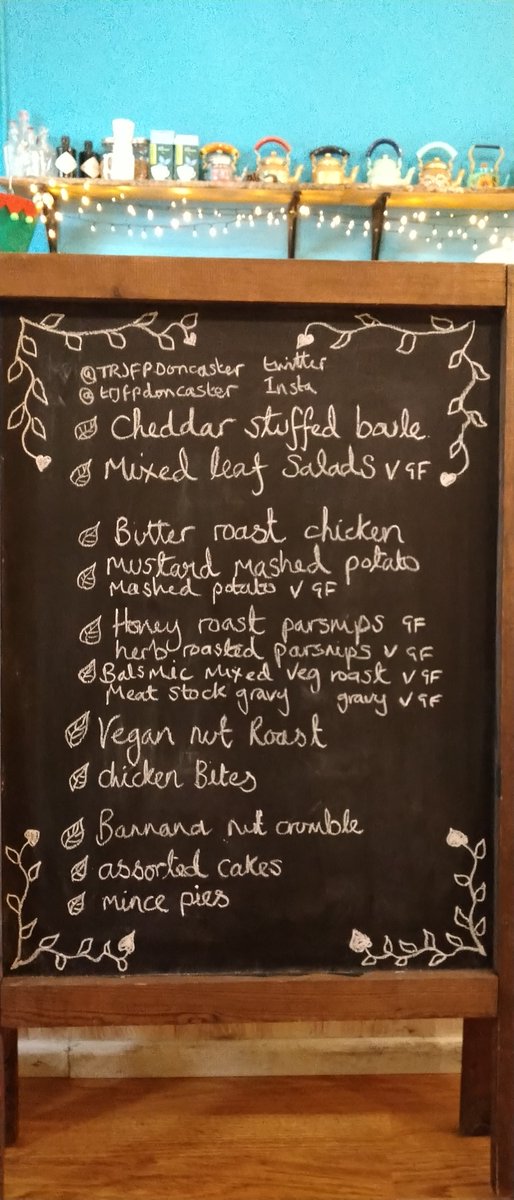 @TRJFPDoncaster twitter
@trjfpdoncaster Insta
Cheddar stuffed boule
Mixed leaf Salads V GF
Butter roast chicken
Mustard mashed potato
Mashed potato V GF
Honey roast parsnips GF
herb roasted parsnips V GF
Balsmic Mixed Veg roast V GF
Meat stock gravy gravy V GF
Vegan nut Roast
chicken Bites
Bannana nut crumble
assorted cakes
mince pies